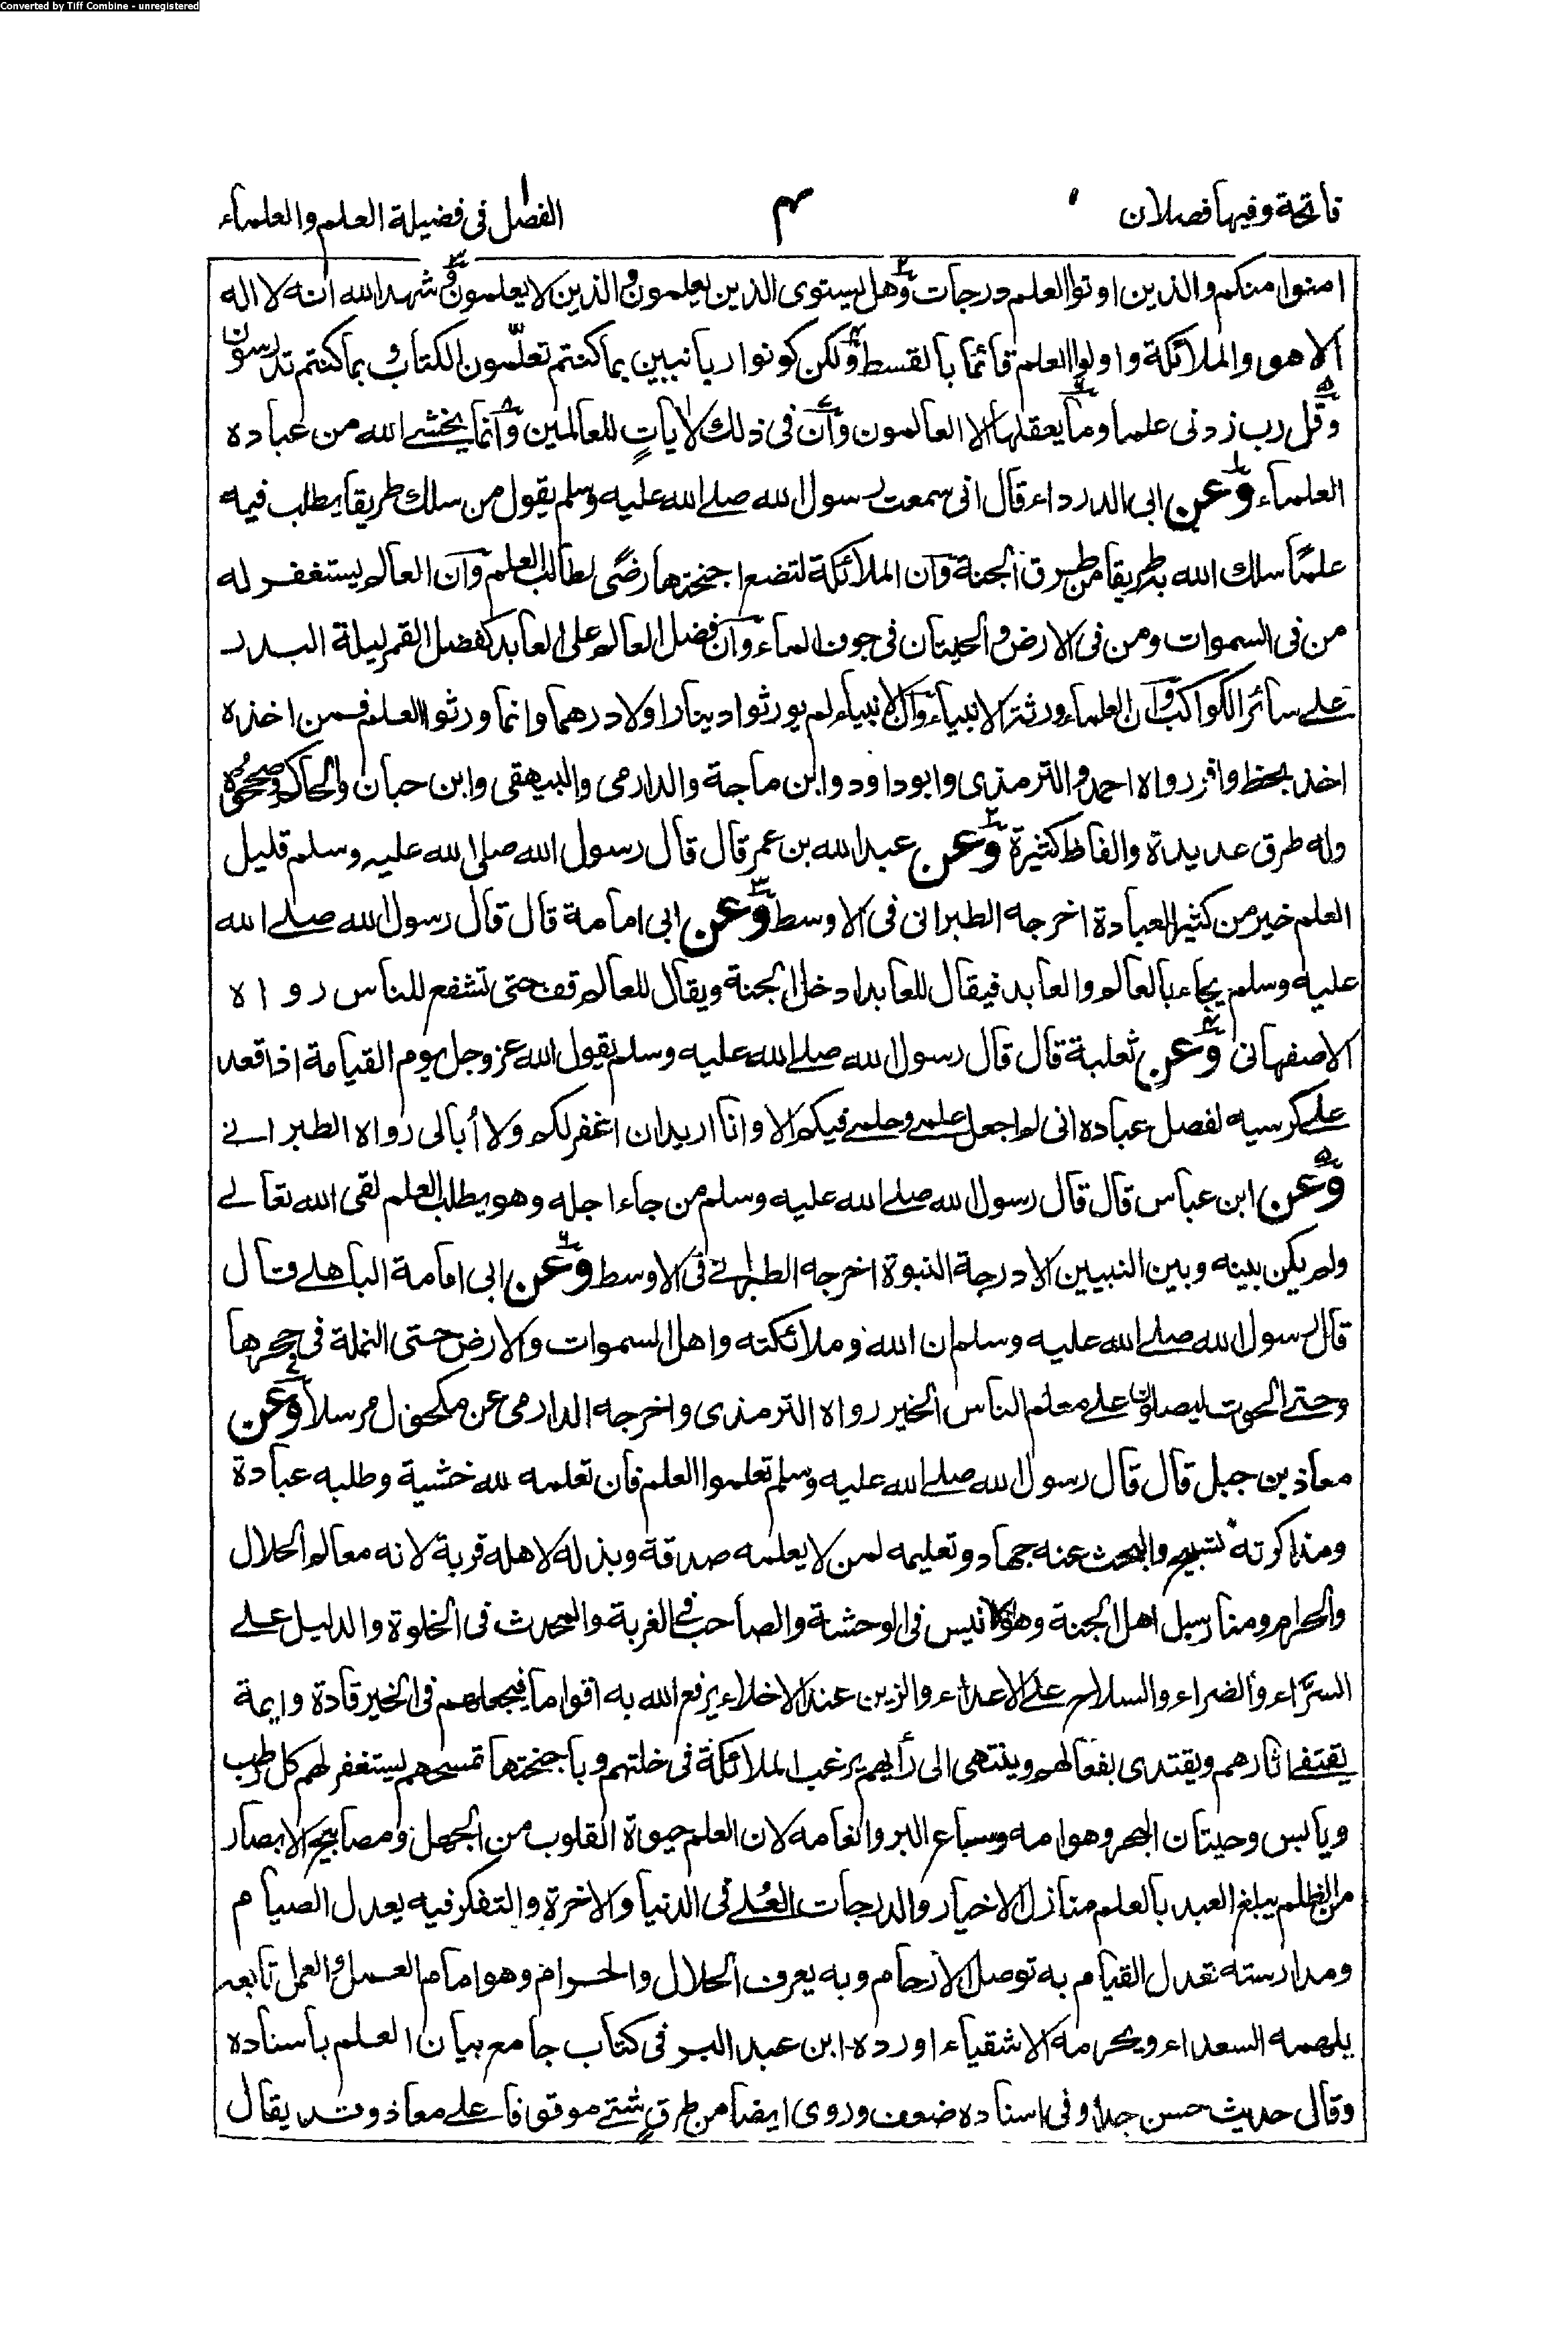 Converted by Tiff Combine - unregistered
فاتحة وفيها فصلان ۴ الفصل ١ فى فضيلة العلم والعلماء
امنوا منكم والذين اوتوا العلم درجات وهل يستوى الذين يعلمون والذين لا يعلمون وشهد الله انه لا اله
الا هو والملائكة واولوا العلم قائما بالقسط ولكن كونوا ربانيين بما كنتم تعلّمون الكتاب وبما كنتم تدرسون
وقل رب زدنى علما وما يعقلها الا العالمون وان فى ذلك لاياتٍ للعالمين وانما يخشى الله من عباده
العلماء وعن ابى الدرداء قال انى سمعت رسول الله صلے الله عليه وسلم يقول من سلك طريقا يطلب فيه
علمًا سلك الله به طريقا من طرق الجنة وان الملائكة لتضع اجنحتها رضًى لطالب العلم وان العالم ليستغفر له
من فى السموات ومن فى الارض والحيتان فى جوف الماء وان فضل العالم على العابد كفضل القمر ليلة البدر
علے سائر الكواكب وان العلماء ورثة الانبياء وان الانبياء لم يورثوا دينارا ولا درهما وانما ورثوا العلم فمن اخذه
اخذ بحظ وافر رواه احمد والترمذى وابو داود وابن ماجة والدارمى والبيهقى وابن حبان والحاكم وصححوه
وله طرق عديدة والفاظ كثيرة وعن عبد الله بن عمر قال قال رسول الله صلى الله عليه وسلم قليل
العلم خير من كثير العبادة اخرجه الطبرانى فى الاوسط وعن ابى امامة قال قال رسول الله صلے الله
عليه وسلم يجاء بالعالم والعابد فيقال للعابد ادخل الجنة ويقال للعالم قف حتى تشفع للناس رواه
الاصفهانى وعن ثعلبة قال قال رسول الله صلے الله عليه وسلم يقول الله عز وجل يوم القيامة اذا قعد
علے كرسيه لفصل عباده انى لم اجعل علمے وحلمے فيكم الا وانا اريد ان اغفر لكم ولا أبالى رواه الطبرانے
وعن ابن عباس قال قال رسول الله صلے الله عليه وسلم من جاء اجله وهو يطلب العلم لقى الله تعالے
ولم يكن بينه وبين النبيين الا درجة النبوة اخرجه الطبرانے فى الاوسط وعن ابى امامة الباهلے قال
قال رسول الله صلے الله عليه وسلم ان الله وملائكته واهل السموات والارض حتى النملة فى جحرها
وحتے الحوت ليصلون علے معلم الناس الخير رواه الترمذى واخرجه الدارمى عن مكحول مرسلا وعن
معاذ بن جبل قال قال رسول الله صلے الله عليه وسلم تعلموا العلم فان تعلمه لله خشية وطلبه عبادة
ومذاكرته تسبيح والبحث عنه جهاد وتعليمه لمن لا يعلمه صدقة وبذله لاهله قربة لانه معالم الحلال
والحرام ومنار سبل اهل الجنة وهو الانيس فى الوحشة والصاحب فے الغربة والمحدث فى الخلوة والدليل علے
السرّاء والضراء والسلاح علے الاعداء والزين عند الاخلاء يرفع الله به اقواما فيجعلهم فى الخير قادة وايمة
يقتفے اثارهم ويقتدى بفعالهم وينتهى الى رأيهم يرغب الملائكة فى خلتهم وباجنحتها تمسحهم يستغفر لهم كل رطب
ويابس وحيتان البحر وهوامه وسباع البر وانعامه لان العلم حيوة القلوب من الجهل ومصابيح الابصار
من الظلم يبلغ العبد بالعلم منازل الاخيار والدرجات العُلے فى الدنيا والاخرة والتفكر فيه يعدل الصيام
ومدارسته تعدل القيام به توصل الارحام وبه يعرف الحلال والحرام وهو امام العمل والعمل تابعه
يلهمه السعداء ويحرمه الاشقياء اورده ابن عبد البر فى كتاب جامع بيان العلم باسناده
وقال حديث حسن جدا وفى اسناده ضعف وروى ايضا من طرقٍ شتے موقوفا علے معاذ وقد يقال